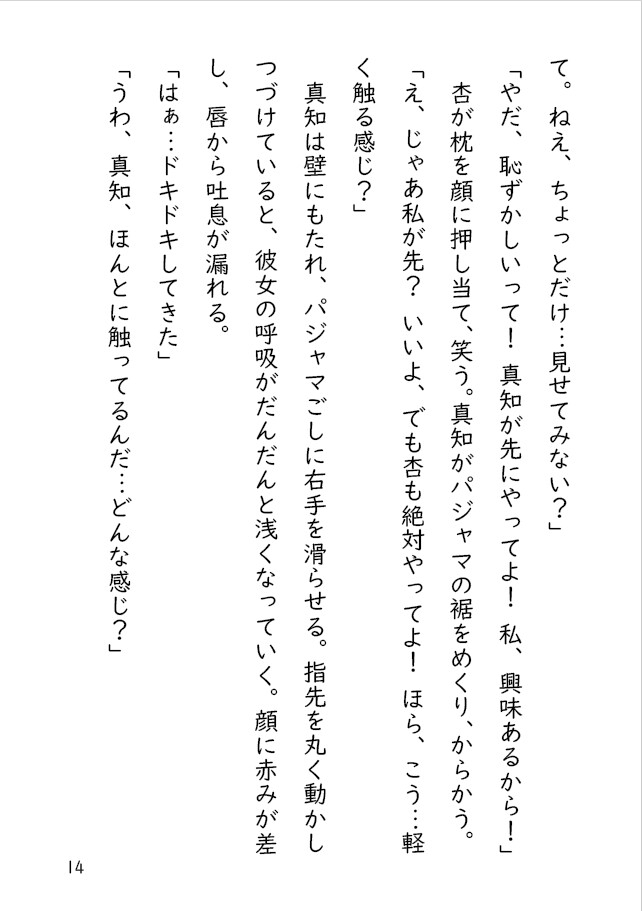 て。ねえ、ちょっとだけ…見せてみない？」
「やだ、恥ずかしいって！ 真知が先にやってよ！ 私、興味あるから！」
杏が枕を顔に押し当て、笑う。真知がパジャマの裾をめくり、からかう。
「え、じゃあ私が先？ いいよ、でも杏も絶対やってよ！ ほら、こう…軽
く触る感じ？」
真知は壁にもたれ、パジャマごしに右手を滑らせる。指先を丸く動かし
つづけていると、彼女の呼吸がだんだんと浅くなっていく。顔に赤みが差
し、唇から吐息が漏れる。
「はぁ…ドキドキしてきた」
「うわ、真知、ほんとに触ってるんだ…どんな感じ？」
14